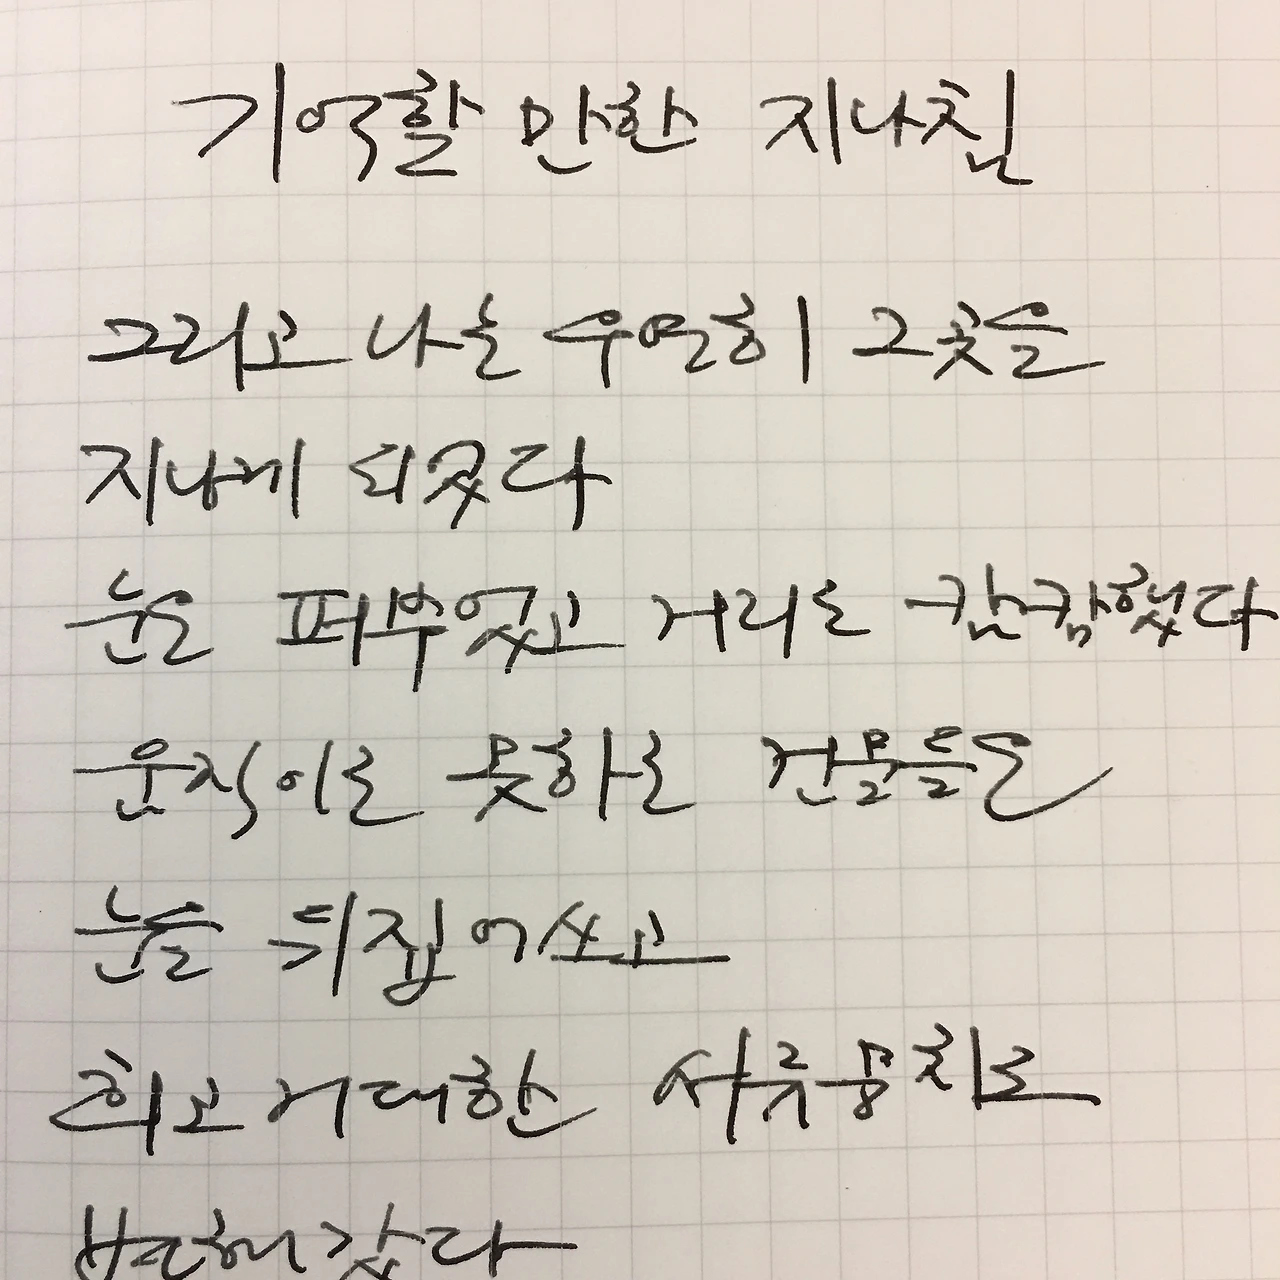 기억할 만한 지나침
그리고 나는 우연히 그곳을
지나게 되었다
눈은 퍼부었고 거리는 캄캄했다
움직이는 못하는 건물들은
눈을 뒤집어쓰고
희고 거대한 서류뭉치로
변해갔다